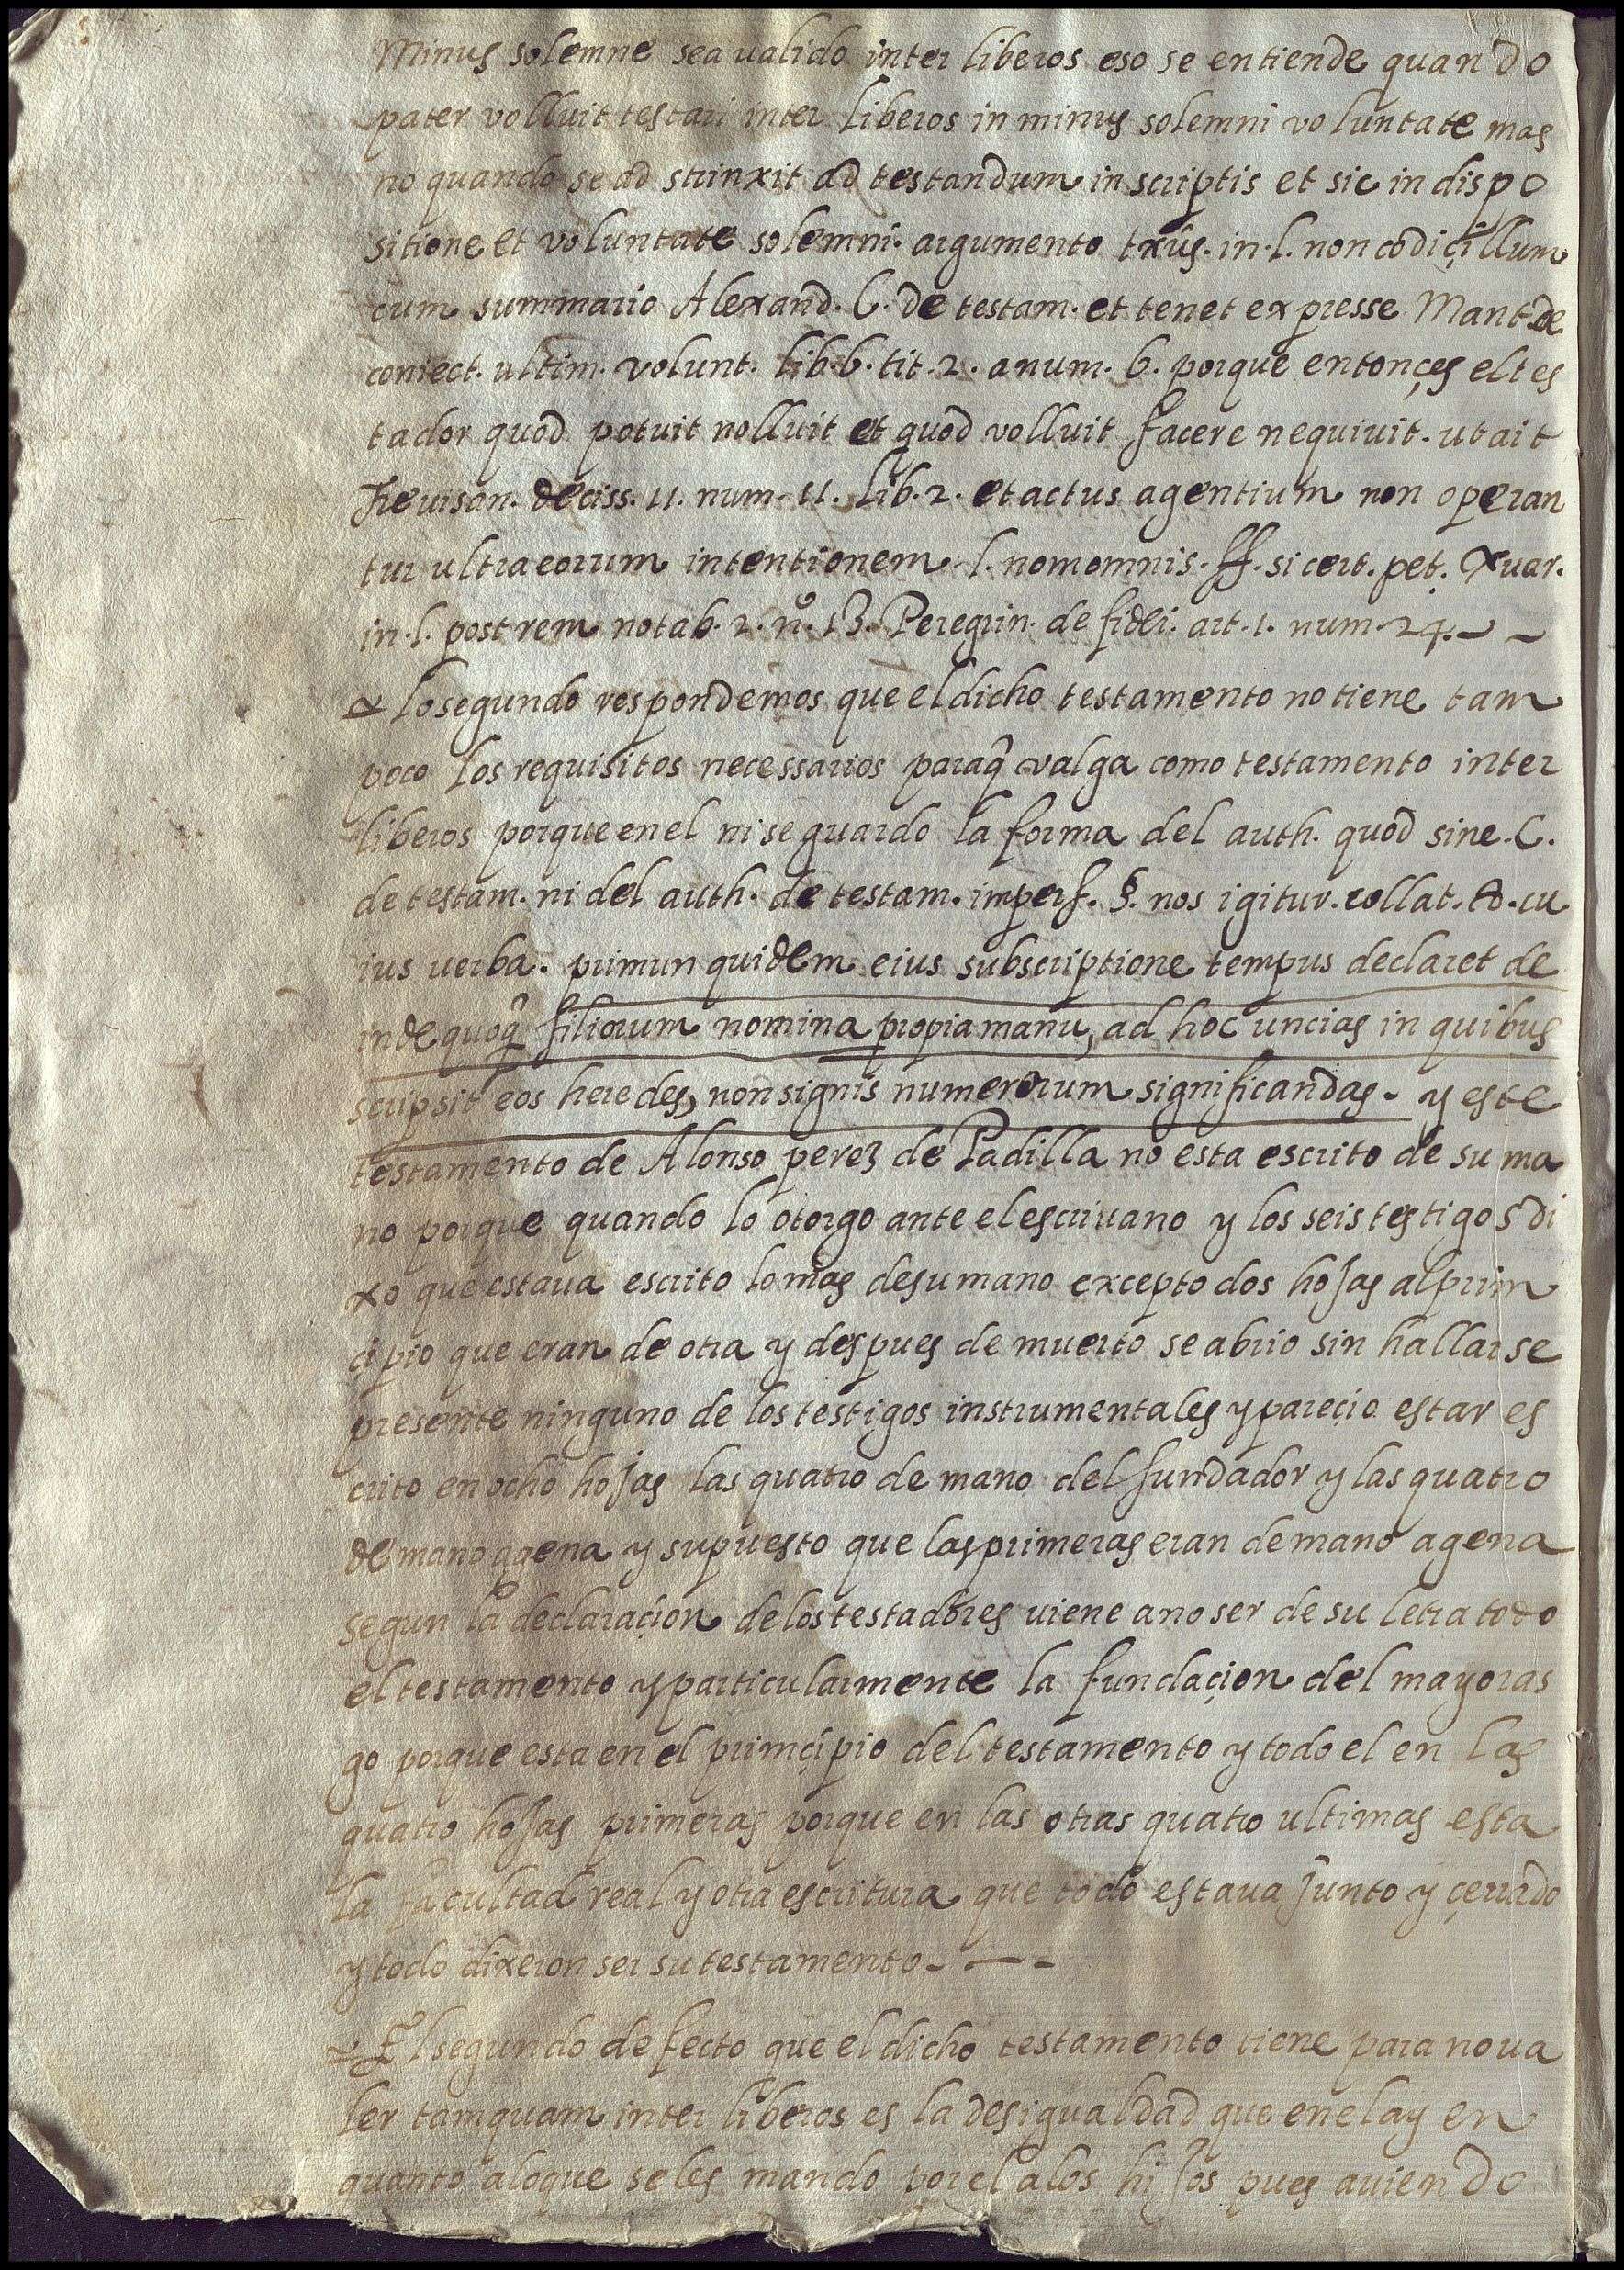 minus solemne sea ualido inter liberos eso se entiende quando
pater volluit testari inter liberos in minus solemni voluntate mas
no quando se ad strinxit ad testandum in scriptis et sic in dispo
sitione et voluntate solemni. argumento txûs. in. l. non codiçillum
cum summario Alexand. C. de testam. et tenet expresse Mant. de
coniect. ultim. volunt. lib. 6. tit. 2. a num. 6. porque entonçes el tes
tador quod potuit nolluit et quod volluit facere nequiuit. ut ait
Treuisan. deciss. 11. num. 11. lib. 2. et actus agentium non operan
tur ultra eorum intentionem l. nom omnis. ff. si cert. pet. Xuar.
in. l. post rem notab. 2. nº. 13. Peregrin. de fidei. art. 1. num. 24. — ~
lo segundo respondemos que el dicho testamento no tiene tam
poco los requisitos necessarios paraq̂ valga como testamento inter
liberos porque en el ni se guardo la forma del auth. quod sine. C.
de testam. ni del auth. de testam. imperf. §. nos igitur. collat. 8. cu
ius uerba. primun quidem eius subscriptione tempus declaret de
inde quoq̂ filiorum nomina propia manu, ad hoc uncias in quibus
scripsit eos heredes, non signis numerorum significandas. y este
testamento de Alonso perez de Padilla no esta escrito de su ma
no porque quando lo otorgo ante el escriuano y los seis testigos di
xo que estaua escrito lo mas de su mano excepto dos hojas al prin
çipio que eran de otra y despues de muerto se abrio sin hallarse
presente ninguno de los testigos instrumentales y pareçio estar es
crito en ocho hojas las quatro de mano del fundador y las quatro
de mano agena y supuesto que las primeras eran de mano agena
segun la declaraçion de los testadores uiene a no ser de su letra todo
el testamento y particularmente la fundaçion del mayoras
go porque esta en el primçipio del testamento y todo el en las
quatro hojas primeras porque en las otras quatro ultimas esta
la facultad real y otra escritura que todo estaua junto y çerrado
y todo dixeron ser su testamento. — -
El segundo defecto que el dicho testamento tiene para no ua
ler tamquam inter liberos es la desigualdad que en el ay en
quanto a lo que se les mando por el a los hijos pues auiendo